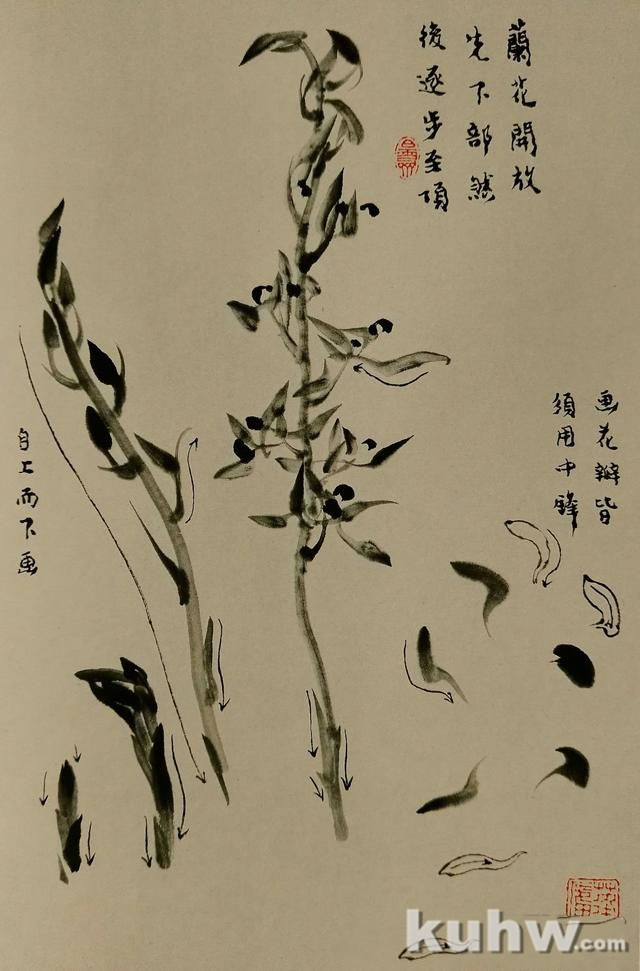 蘭花開放
先下部然
後逐步至頂
画花瓣皆
須用中鋒
自上而下画
kuhw.com